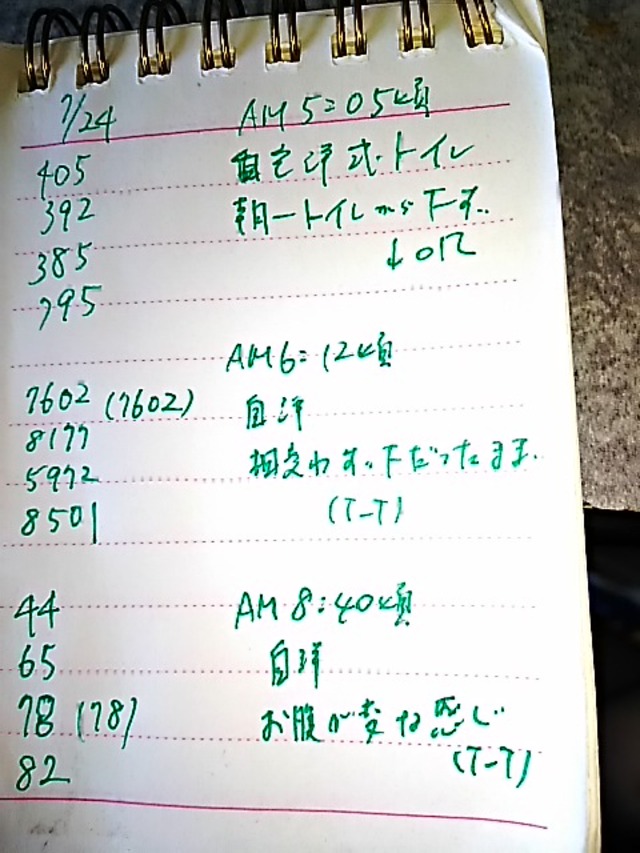 7/24 AM 5:05頃
405 自宅洋式トイレ
392 朝一トイレから下す..
385 ↓
795
AM 6:12頃
7602 (7602) 自洋
8177
5972 相変わず..下だったまま.
8501 (T-T)
44 AM 8:40頃
65 自洋
78 (78) お腹が変な感じ
82 (T-T)